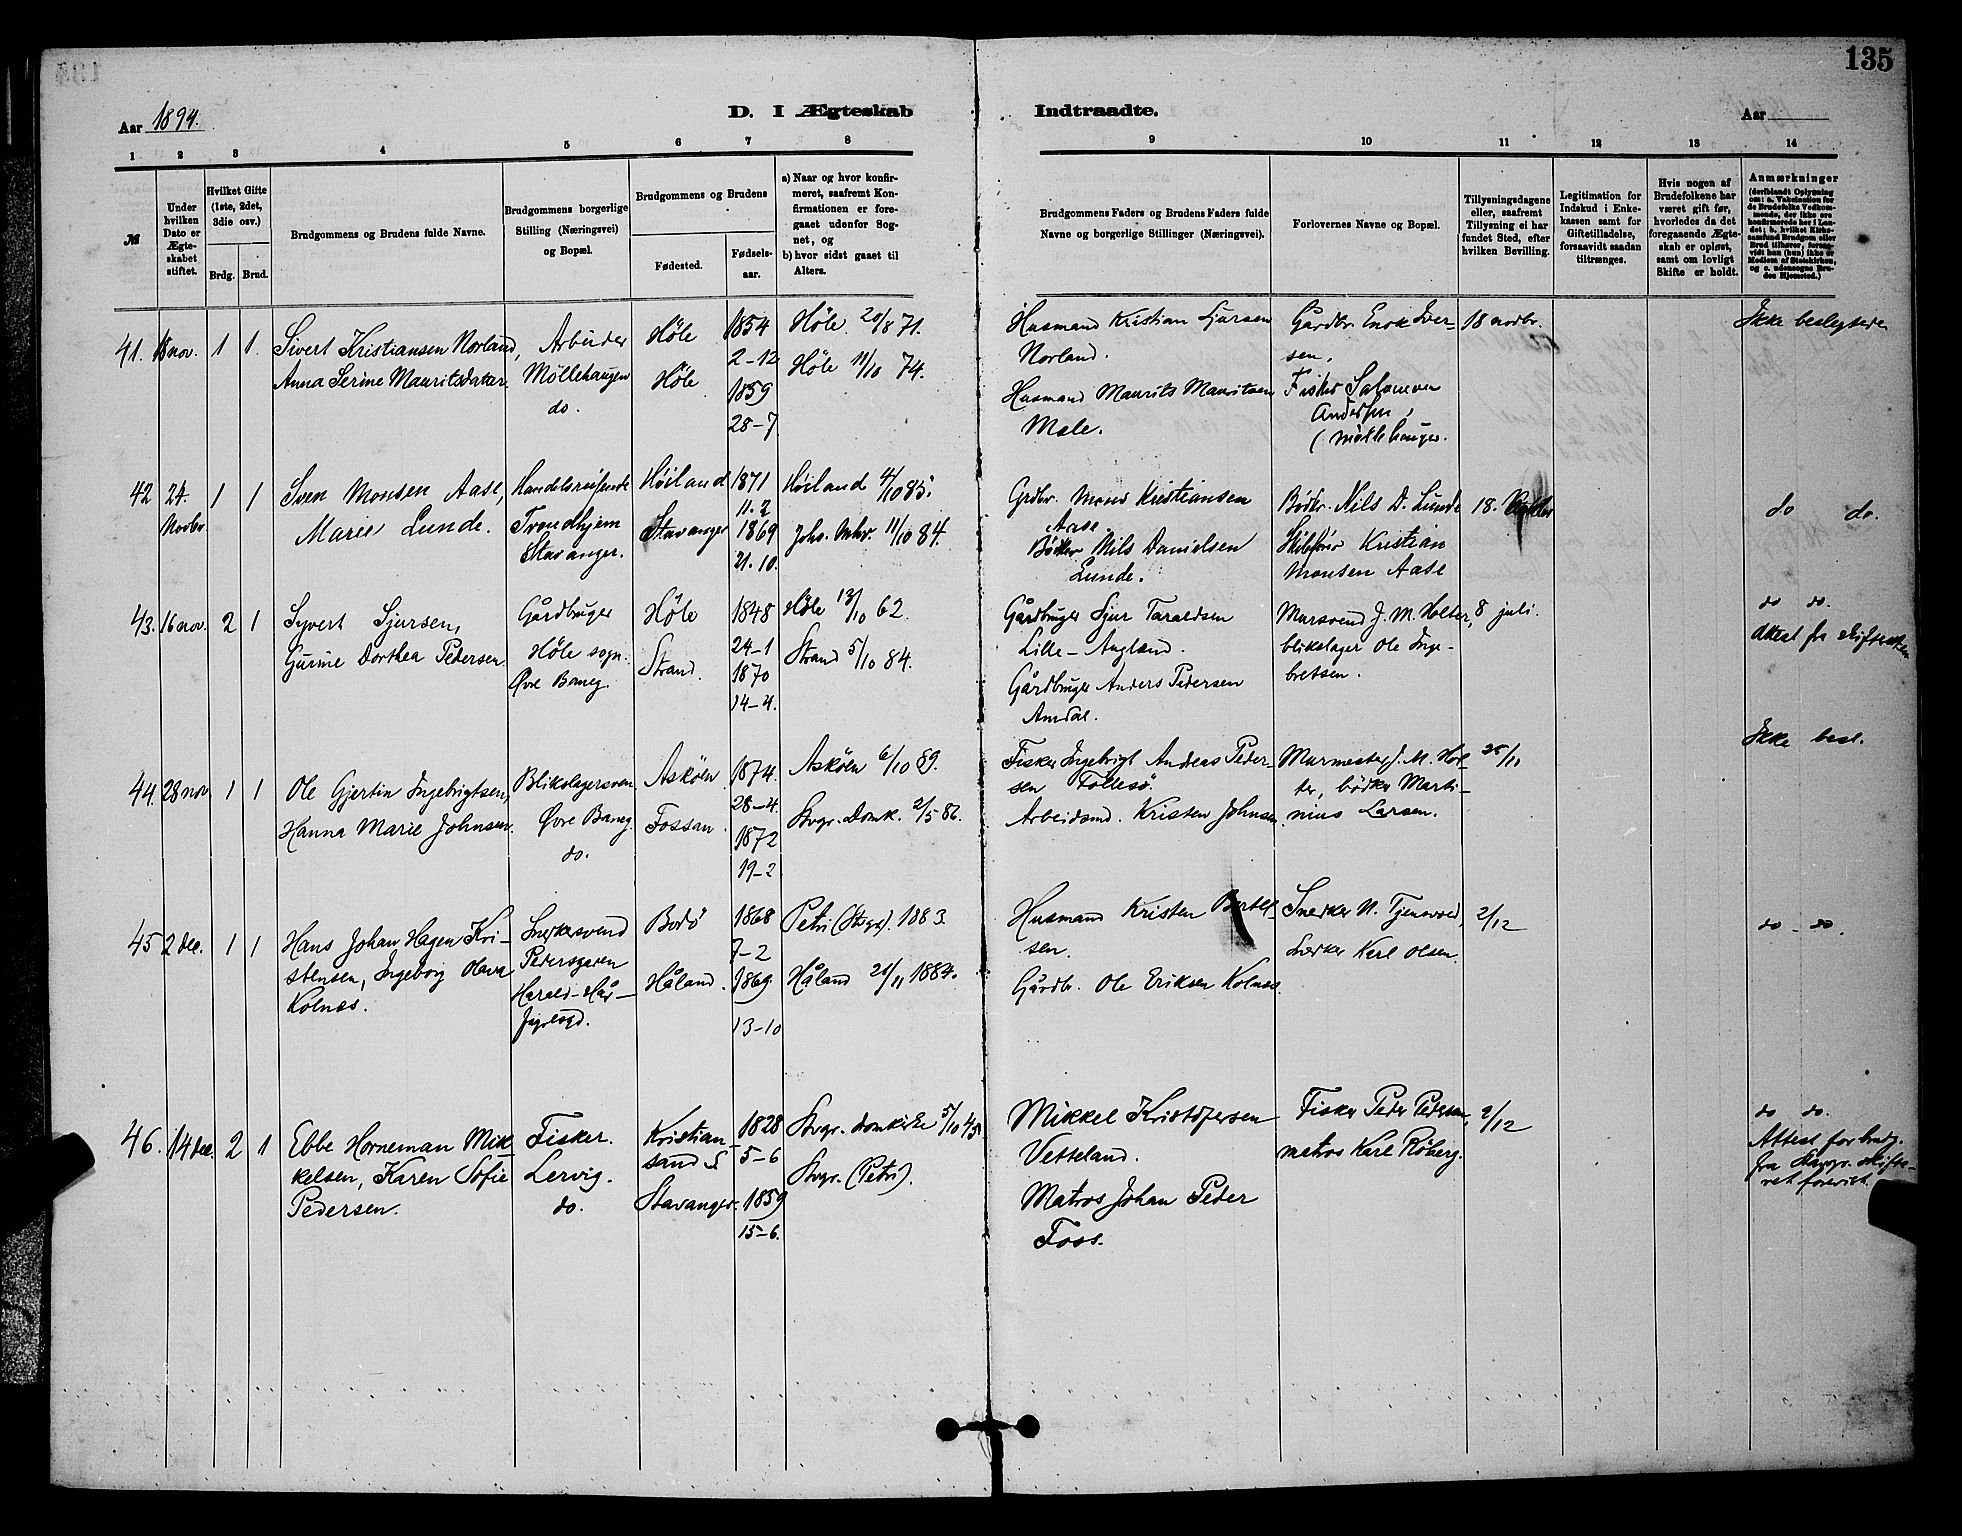 135
Aar 1894.
D. I Ægteskab
Indtraadte.
Aar
1 2 3 4 5 6 7 8
9 10 11 12 13 14
№
Under hvilken Dato er Ægteskabet stiftet.
Hvilket Gifte (1ste, 2det, 3die osv.)
Brdg. Brud.
Brudgommens og Brudens fulde Navne.
Brudgommens borgerlige Stilling (Næringsvei) og Bopæl.
Brudgommens og Brudens
Fødested.
Fødselsaar.
a) Naar og hvor konfirmeret, saafremt Konfirmationen er foregaaet udenfor Sognet, og
b) hvor sidst gaaet til Alters.
Brudgommens Faders og Brudens Faders fulde Navne og borgerlige Stillinger (Næringsvei).
Forlovernes Navne og Bopæl.
Tillysningsdagene eller, saafremt Tillysning ei har fundet Sted, efter hvilken Bevilling.
Legitimation for Indskud i Enkekassen samt for Giftetilladelse, forsaavidt saadan tiltrænges.
Hvis nogen af Brudefolkene har været gift før, hvorledes da det foregaaende Ægteskab er opløst, samt om lovligt Skifte er holdt.
Anmærkninger
(deriblandt Oplysning om: a. Vakcination for de Brudefolks Vedkommende, der ikke ere konfirmerede her i Landet; b. hvilket Kirkesamfund Brudgom eller Brud tilhører, forsaavidt han (hun) ikke er Medlem af Statskirken, og c. udensogns Brudes Hjemsted.)
41. 18 nov. 1 1.
Sivert Kristiansen Norland,
Anna Serine Mauritsdatter.
Arbeider
Møllehaugen
do.
Høle
Høle
1854
2-12
1859
28-7
Høle 20/8 71.
Høle 11/10 74.
Husmand Kristian Sjursen
Norland.
Husmand Maurits Mauritsen
Mele.
Gårdbr. Enok Iver-
sen.
Fisker Salomon
Andersen,
(Møllehaugen.
18 novbr.
Ikke beslegtede
42 24. Novbr 1 1
Sven Monsen Aase,
Marie Lunde.
Handelsreisende
Trondhjem
Stavanger.
Høiland
Stavanger
1871
11.2
1869
21.10.
Høiland 4/10 85.
Johs. 11/10 84.
Grdbr. Mons Kristiansen
Aase.
Bødker Nils Danielsen
Lunde.
Bødkr. Nils D. Lunde
Kristian
Monsen Aase
18.
do do.
43. 16 nov. 2 1
Syvert Sjursen,
Gurine Dorthea Pedersen.
Gårdbruger
Høle sogn.
Øvre Baneg.
Høle
Strand.
1848
24-1
1870
14-4.
Høle 13/10 62.
Strand 5/10 84.
Gårdbruger Sjur Taraldsen
Lille-Aagland.
Gårdbruger Anders Pedersen
Amdal.
Mursvend J. M. Holter,
blikslager Ole Inge-
bretsen.
8 juli.
do do.
Attest fra skifteretten
44. 28 nov 1 1
Ole Gjertin Ingebrigtsen,
Hanna Marie Johnsen.
Blikslagersven
Øvre Baneg.
do.
Askøen
Fossan.
1874.
28-4.
1872
19-2
Askøen 6/10 89.
Stvgr. Domk. 2/5 86.
Fisker Ingebrigt Andreas Peder-
sen Follesø.
Arbeidsmd. Kristen Johnsen
Murmester J. M. Hol-
ter, bødker Marti-
nius Larsen.
25/11
Ikke besl.
45 2 dec. 1 1
Hans Johan Hagen Kri-
stensen, Ingeborg Olava
Kolnes.
Snekkersvend
Pedersgaden
Harald-Hår-
Bodø
Håland.
1868
7-2
1869
13-10
Petri (Stvgr). 1883.
Håland 28/11 1884.
Husmand Kristen Bertel-
sen.
Gårdb. Ole Eriksen Kolnes.
Snekker N. Tjensvold
Snekker Karl Olsen.
2/12
do - do.
46. 14 dec. 2 1
Ebbe Horneman Mik-
kelsen, Karen Sofie
Pedersen.
Fisker.
Lervig.
do.
Kristian-
sand S
Stavanger.
1828
5-6
1859
15-6.
Stvgr. domkirke 5/10 45
Stvgr. (Petri).
Mikkel Kristofersen
Vetteland.
Matros Johan Peder
Foss.
Fisker Peder Pedersen,
matros Karl Röberg.
2/12
do do.
Attest for brudg.
fra Stavgr. skifte-
ret forevist.